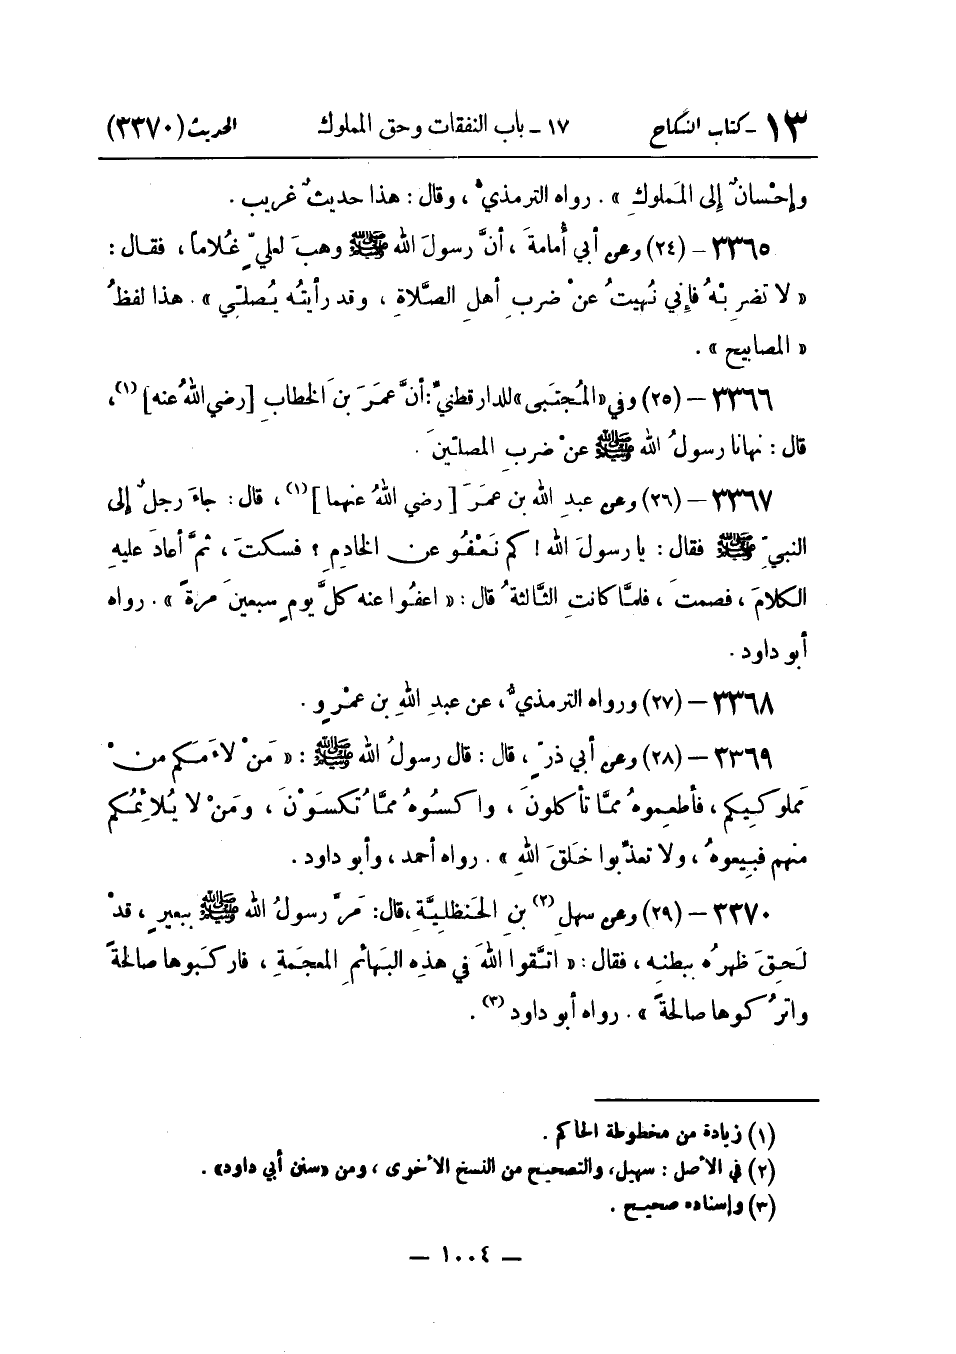 ١٣ - كتاب النكاح ١٧ - باب النفقات وحق المملوك الحديث (٣٣٧٠)
وإحْسانٌ إلى المَملوكِ » . رواه الترمذيُّ ، وقال : هذا حديثٌ غريب .
٣٣٦٥ - (٢٤) وعن أبي أُمامةَ ، أنَّ رسولَ الله ﷺ وهبَ لعليٍّ غُلاماً ، فقـال :
« لا تضرِبْهُ فإني نُهيتُ عنْ ضربِ أهلِ الصَّلاةِ ، وقد رأيتُه يُصلّي » . هذا لفظُ
« المصابيح » .
٣٣٦٦ - (٢٥) وفي «المُجتَبى» للدارقطنيِّ : أنَّ عمرَ بنَ الخطابِ [رضي اللهُ عنه] (١) ،
قال : نهانا رسولُ الله ﷺ عنْ ضربِ المصلّينَ .
٣٣٦٧ - (٢٦) وعن عبدِ الله بن عمرَ [ رضي اللهُ عنهما ] (١) ، قال : جاءَ رجلٌ إلى
النبيِّ ﷺ فقال : يا رسولَ الله ! كم نَعْفُو عن الخادِمِ ؟ فسكتَ ، ثمَّ أعادَ عليهِ
الكلامَ ، فصمتَ ، فلمَّا كانتِ الثَّالثةُ قال : « اعفُوا عنه كلَّ يومٍ سبعينَ مرةً » . رواه
أبو داود .
٣٣٦٨ - (٢٧) ورواه الترمذيُّ ، عن عبدِ اللهِ بن عمْرٍو .
٣٣٦٩ - (٢٨) وعن أبي ذرٍّ ، قال : قال رسولُ الله ﷺ : « مَنْ لاءَمَكم منْ
مَملوكيكم ، فأطعِموهُ ممَّا تأكلونَ ، واكسُوهُ ممَّا تُكسَوْنَ ، ومَنْ لا يُلائِمُكم
منهم فبيعوهُ ، ولا تعذِّبوا خلقَ اللهِ » . رواه أحمد ، وأبو داود .
٣٣٧٠ - (٢٩) وعن سهلِ (٢) بنِ الحَنظليَّةِ ، قال : مَرَّ رسولُ الله ﷺ ببعيرٍ ، قدْ
لَحِقَ ظهرُه ببطنِه ، فقال : « اتَّقوا اللهَ في هذه البَهائمِ المعجَمةِ ، فاركَبوها صالحةً
واترُكوها صالحةً » . رواه أبو داود (٣) .
(١) زيادة من مخطوطة الحاكم .
(٢) في الأصل : سهيل ، والتصحيح من النسخ الأخرى ، ومن «سنن أبي داود» .
(٣) وإسناده صحيح .
— ١٠٠٤ —